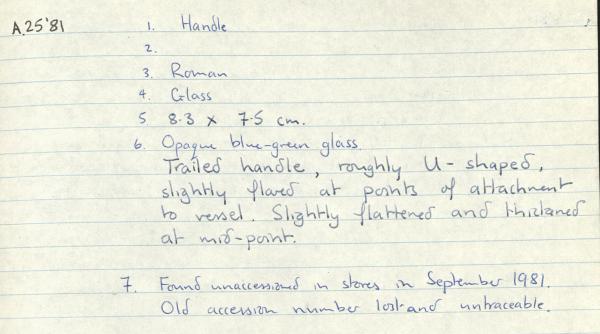 A.25'81 1. Handle
2.
3. Roman
4. Glass
5 8.3 x 7.5 cm.
6. Opaque blue-green glass.
Trailed handle, roughly U-shaped,
slightly flared at points of attachment
to vessel. Slightly flattened and thickened
at mid-point.
7. Found unaccessioned in stores in September 1981.
Old accession number lost and untraceable.